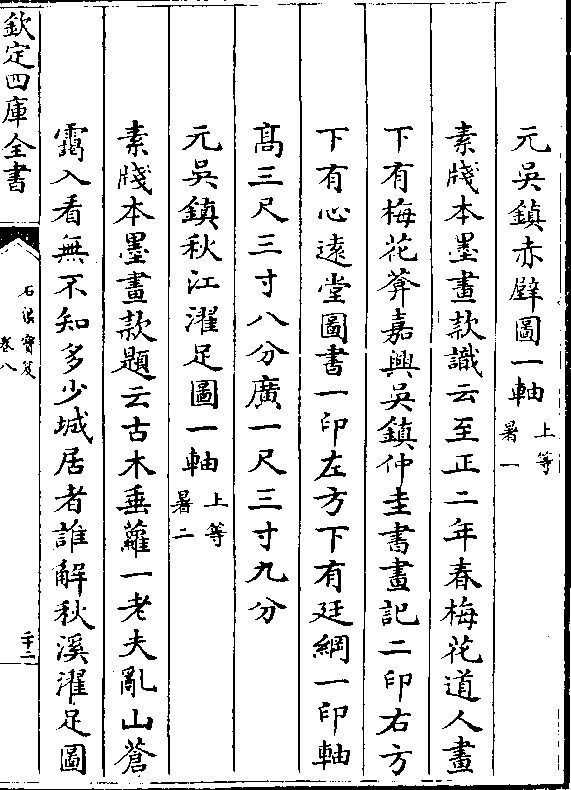 元吳鎮赤壁圖一軸 上等
暑一
素牋本墨畫款識云至正二年春梅花道人畫
下有梅花葊嘉興吳鎮仲圭書畫記二印右方
下有心遠堂圖書一印左方下有廷綱一印軸
髙三尺三寸八分廣一尺三寸九分
元吳鎮秋江濯足圖一軸 上等
暑二
素牋本墨畫款題云古木垂蘿一老夫亂山蒼
靄入看無不知多少城居者誰解秋溪濯足圖
欽定四庫全書
石渠寶笈
卷八
二十二